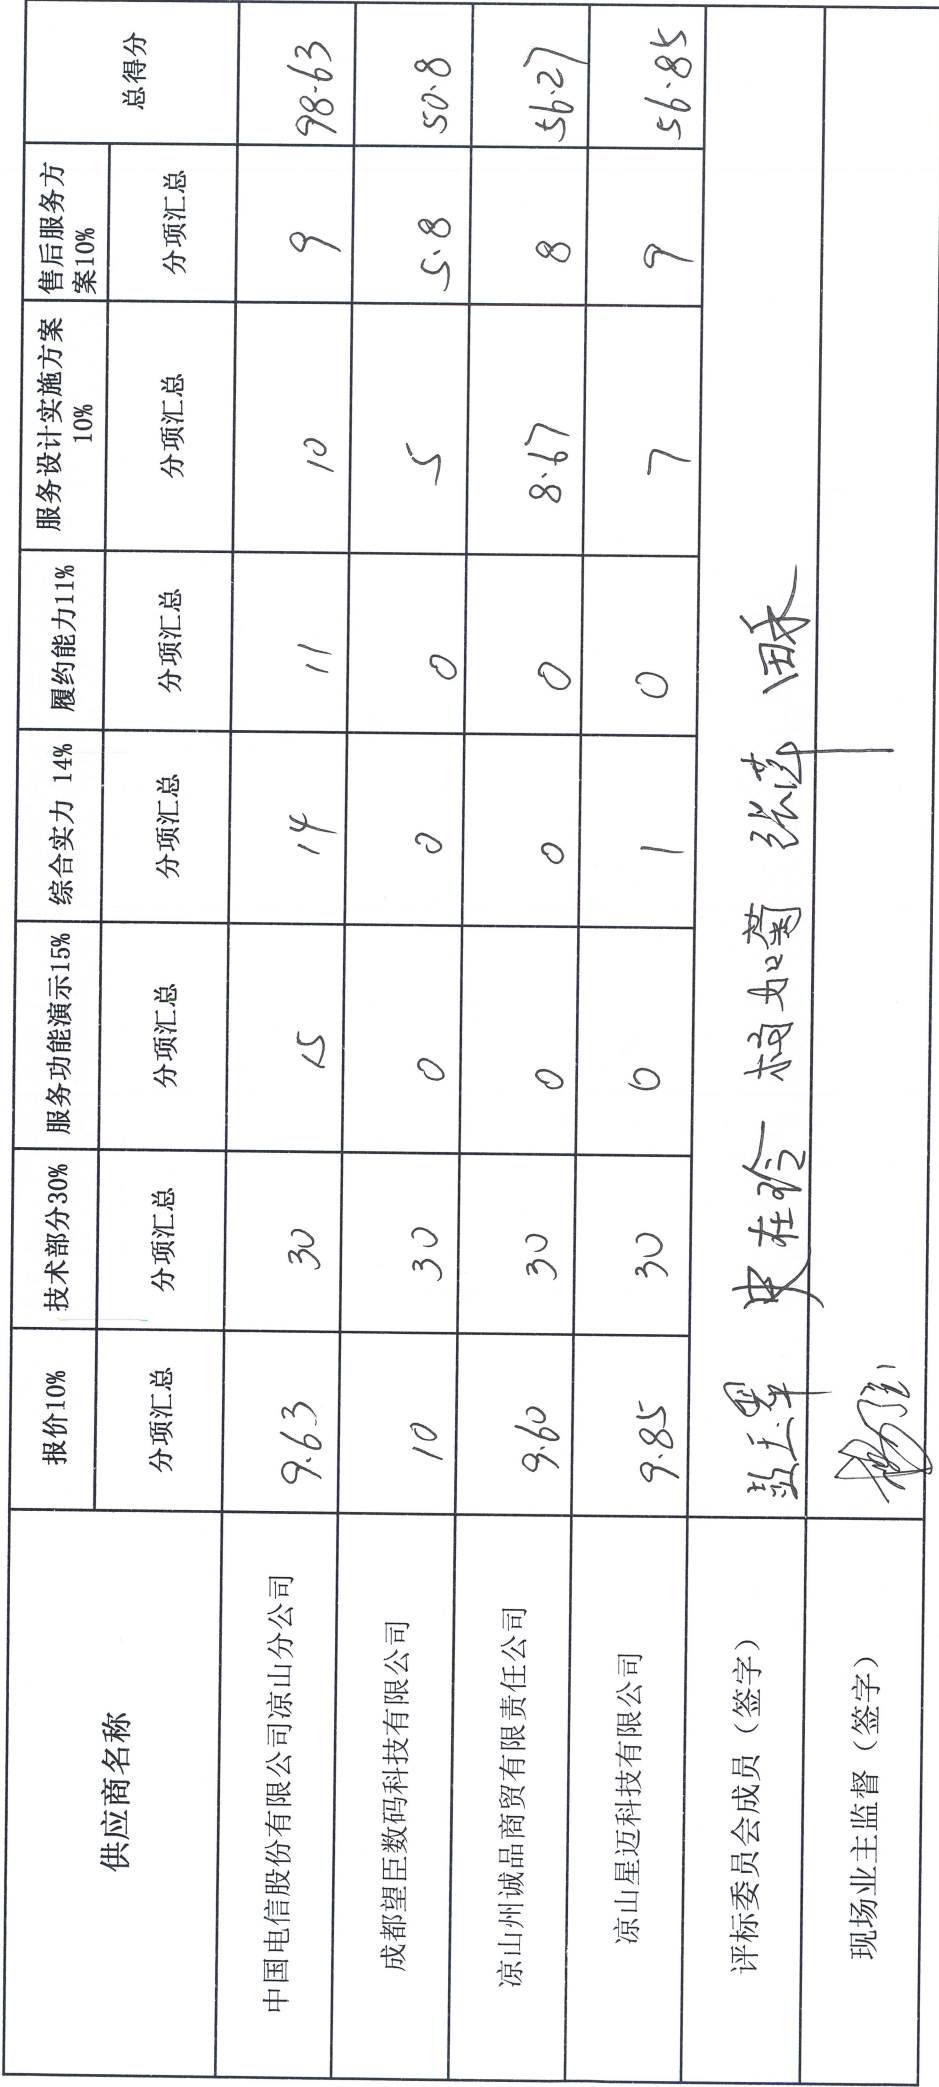 供应商名称 报价10% 技术部分30% 服务功能演示15% 综合实力 14% 履约能力11% 服务设计实施方案10% 售后服务方案10% 总得分
分项汇总 分项汇总 分项汇总 分项汇总 分项汇总 分项汇总 分项汇总
中国电信股份有限公司凉山分公司 9.63 30 15 14 11 10 9 98.63
成都望臣数码科技有限公司 10 30 0 0 0 5 5.8 50.8
凉山州诚品商贸有限责任公司 9.60 30 0 0 0 8.67 8 56.27
凉山星迈科技有限公司 9.85 30 0 1 0 7 9 56.85
评标委员会成员（签字）
现场业主监督（签字）